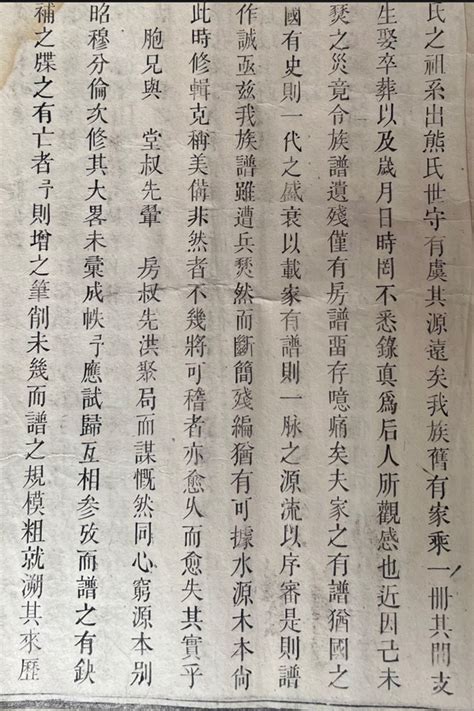 氏之祖系出熊氏世守有虞其源遠矣我族舊有家乘一冊其間支
生娶卒葬以及歲月日時罔不悉錄真爲后人所觀感也近因己未
燹之災竟令族譜遺殘僅有房譜畱存噫痛矣夫家之有譜猶國之
國有史則一代之盛衰以載家有譜則一脉之源流以序審是則譜
作誠亟兹我族譜雖遭兵燹然而斷簡殘編猶有可據水源木本尙
此時修輯克稱美備非然者不幾將可稽者亦愈乆而愈失其實乎
胞兄與　堂叔先鞏　房叔先洪聚局而謀慨然同心窮源本別
昭穆分倫次修其大畧未彙成帙予應試歸互相參攷而譜之有缺
補之牒之有亡者予則增之筆削未幾而譜之規模粗就溯其來歷